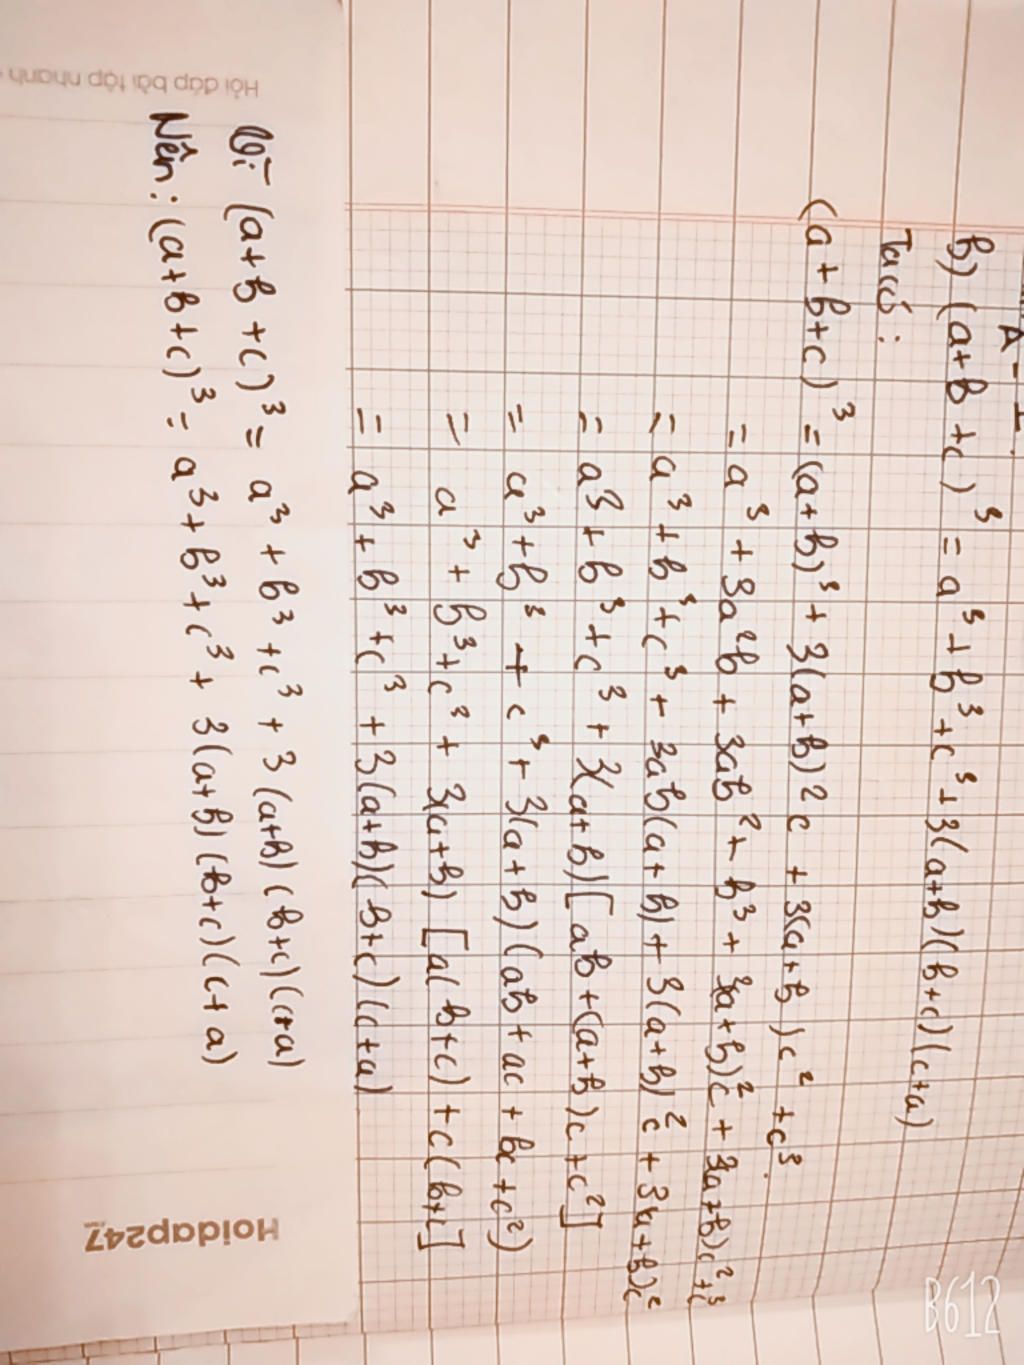 A - I
b) (a+b+c)³ = a³+b³+c³+3(a+b)(b+c)(c+a)
Ta có :
(a+b+c)³ = (a+b)³ + 3(a+b)²c + 3(a+b)c² + c³.
= a³ + 3a²b + 3ab² + b³ + 3(a+b)²c + 3(a+b)c² + c³
= a³ + b³ + c³ + 3ab(a+b) + 3(a+b)²c + 3(a+b)c²
= a³ + b³ + c³ + 3(a+b)[ab+(a+b)c+c²]
= a³ + b³ + c³ + 3(a+b)(ab+ac+bc+c²)
= a³ + b³ + c³ + 3(a+b)[a(b+c)+c(b+c]
= a³ + b³ + c³ + 3(a+b)(b+c)(c+a)
Vì (a+b+c)³ = a³ + b³ + c³ + 3(a+b)(b+c)(c+a)
Nên : (a+b+c)³ = a³ + b³ + c³ + 3(a+b)(b+c)(c+a)
Hỏi đáp bài tập nhanh
Hoidap247
B612